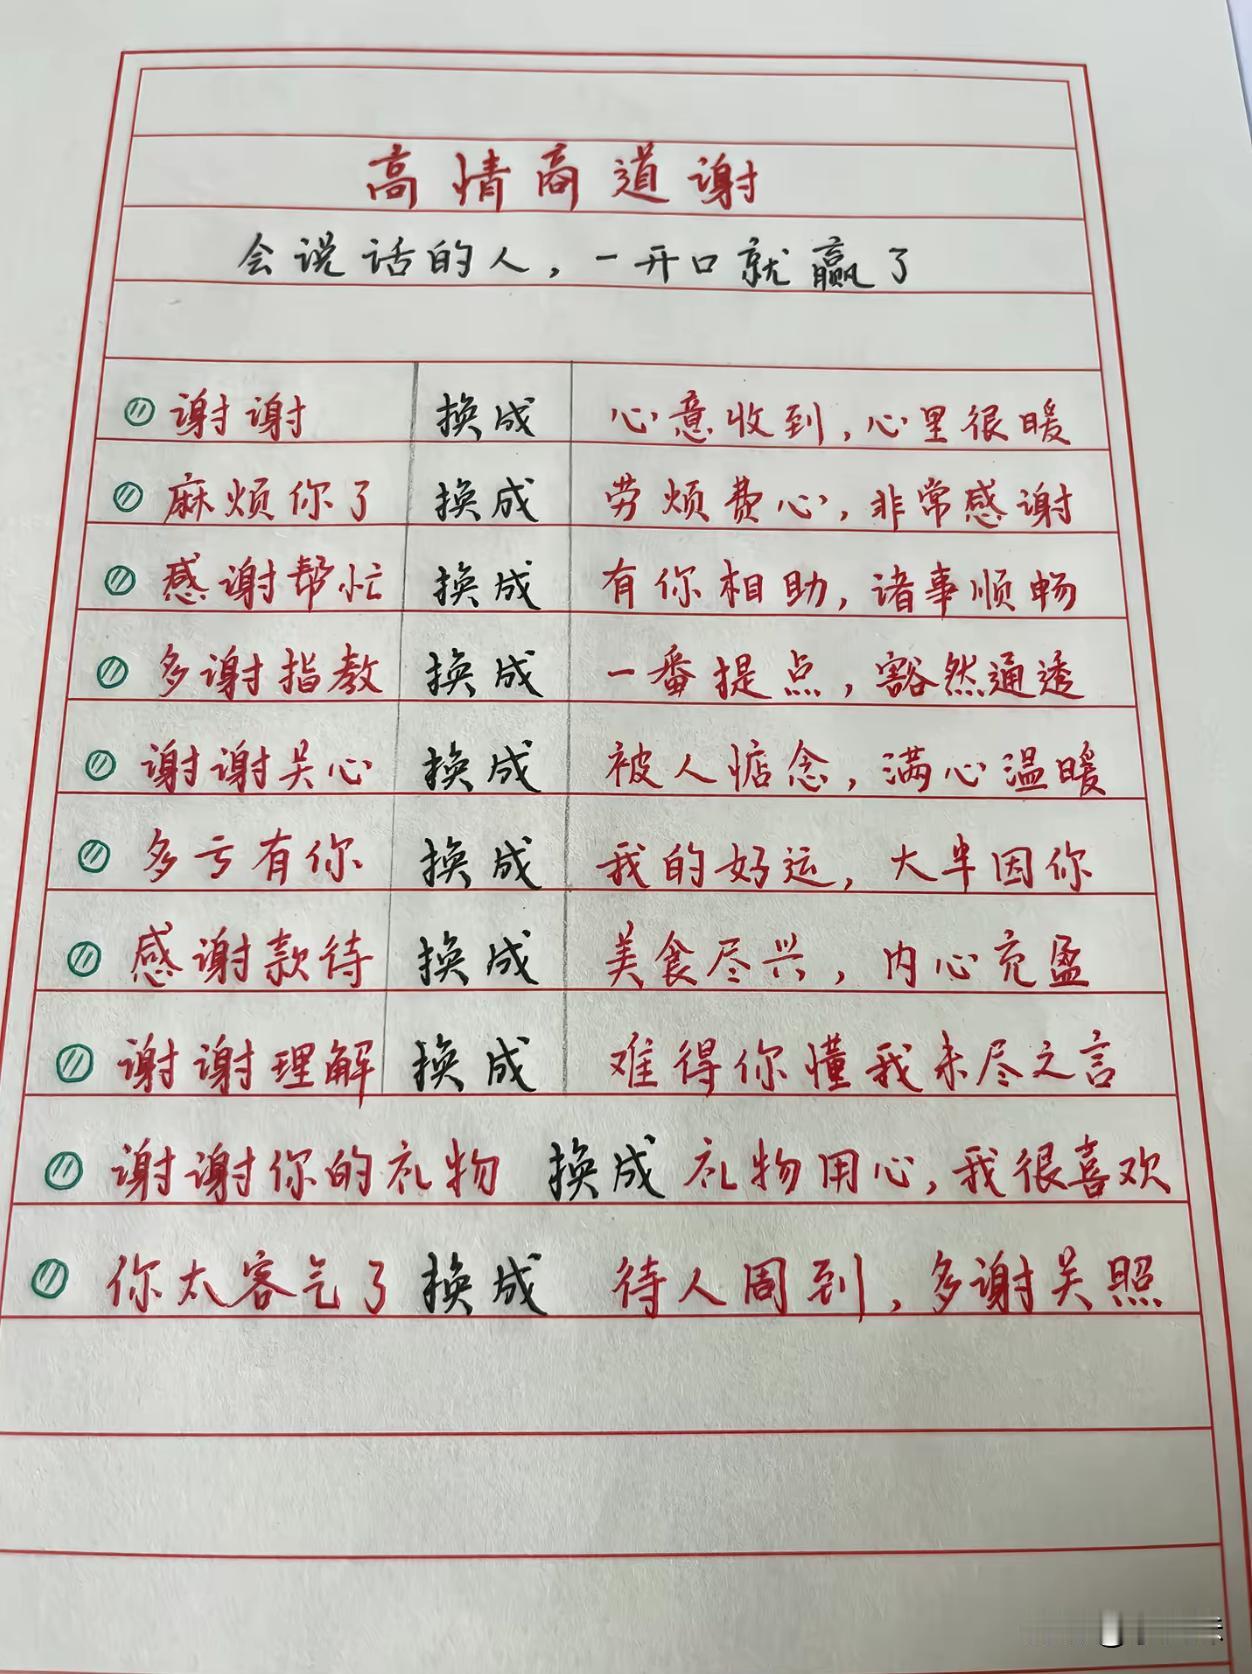 高情商道谢
会说话的人，一开口就赢了
谢谢 换成 心意收到，心里很暖
麻烦你了 换成 劳烦费心，非常感谢
感谢帮忙 换成 有你相助，诸事顺畅
多谢指教 换成 一番提点，豁然通透
谢谢关心 换成 被人惦念，满心温暖
多亏有你 换成 我的好运，大半因你
感谢款待 换成 美食尽兴，内心充盈
谢谢理解 换成 难得你懂我未尽之言
谢谢你的礼物 换成 礼物用心，我很喜欢
你太客气了 换成 待人周到，多谢关照